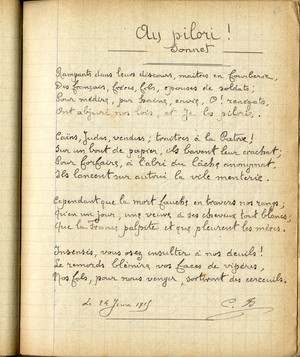 Au pilori !
Sonnet
Rampants dans leurs discours, maîtres en fourberie,
Des français, frères, fils, épouses de soldats ;
Pour médire, par haine, envie, O ! renégats,
Ont abjuré nos lois, et Je les pilorie.
Caïns, Judas, vendus ; traîtres à la Patrie !
Sur un bout de papier, ils bavent leur crachat ;
Pour forfaire, à l'abri du lâche anonymat,
Ils lancent sur autrui la vile menterie.
Cependant que la mort fauche en travers nos rangs ;
Qu'en un jour, une veuve a ses cheveux tout blancs ;
Que la France palpite et que pleurent les mères.
Insensés, vous osez insulter à nos deuils !
Le remords blêmira vos faces de vipères,
Nos fils, pour nous venger, sortiront des cercueils.
Le 24 1915
C. B